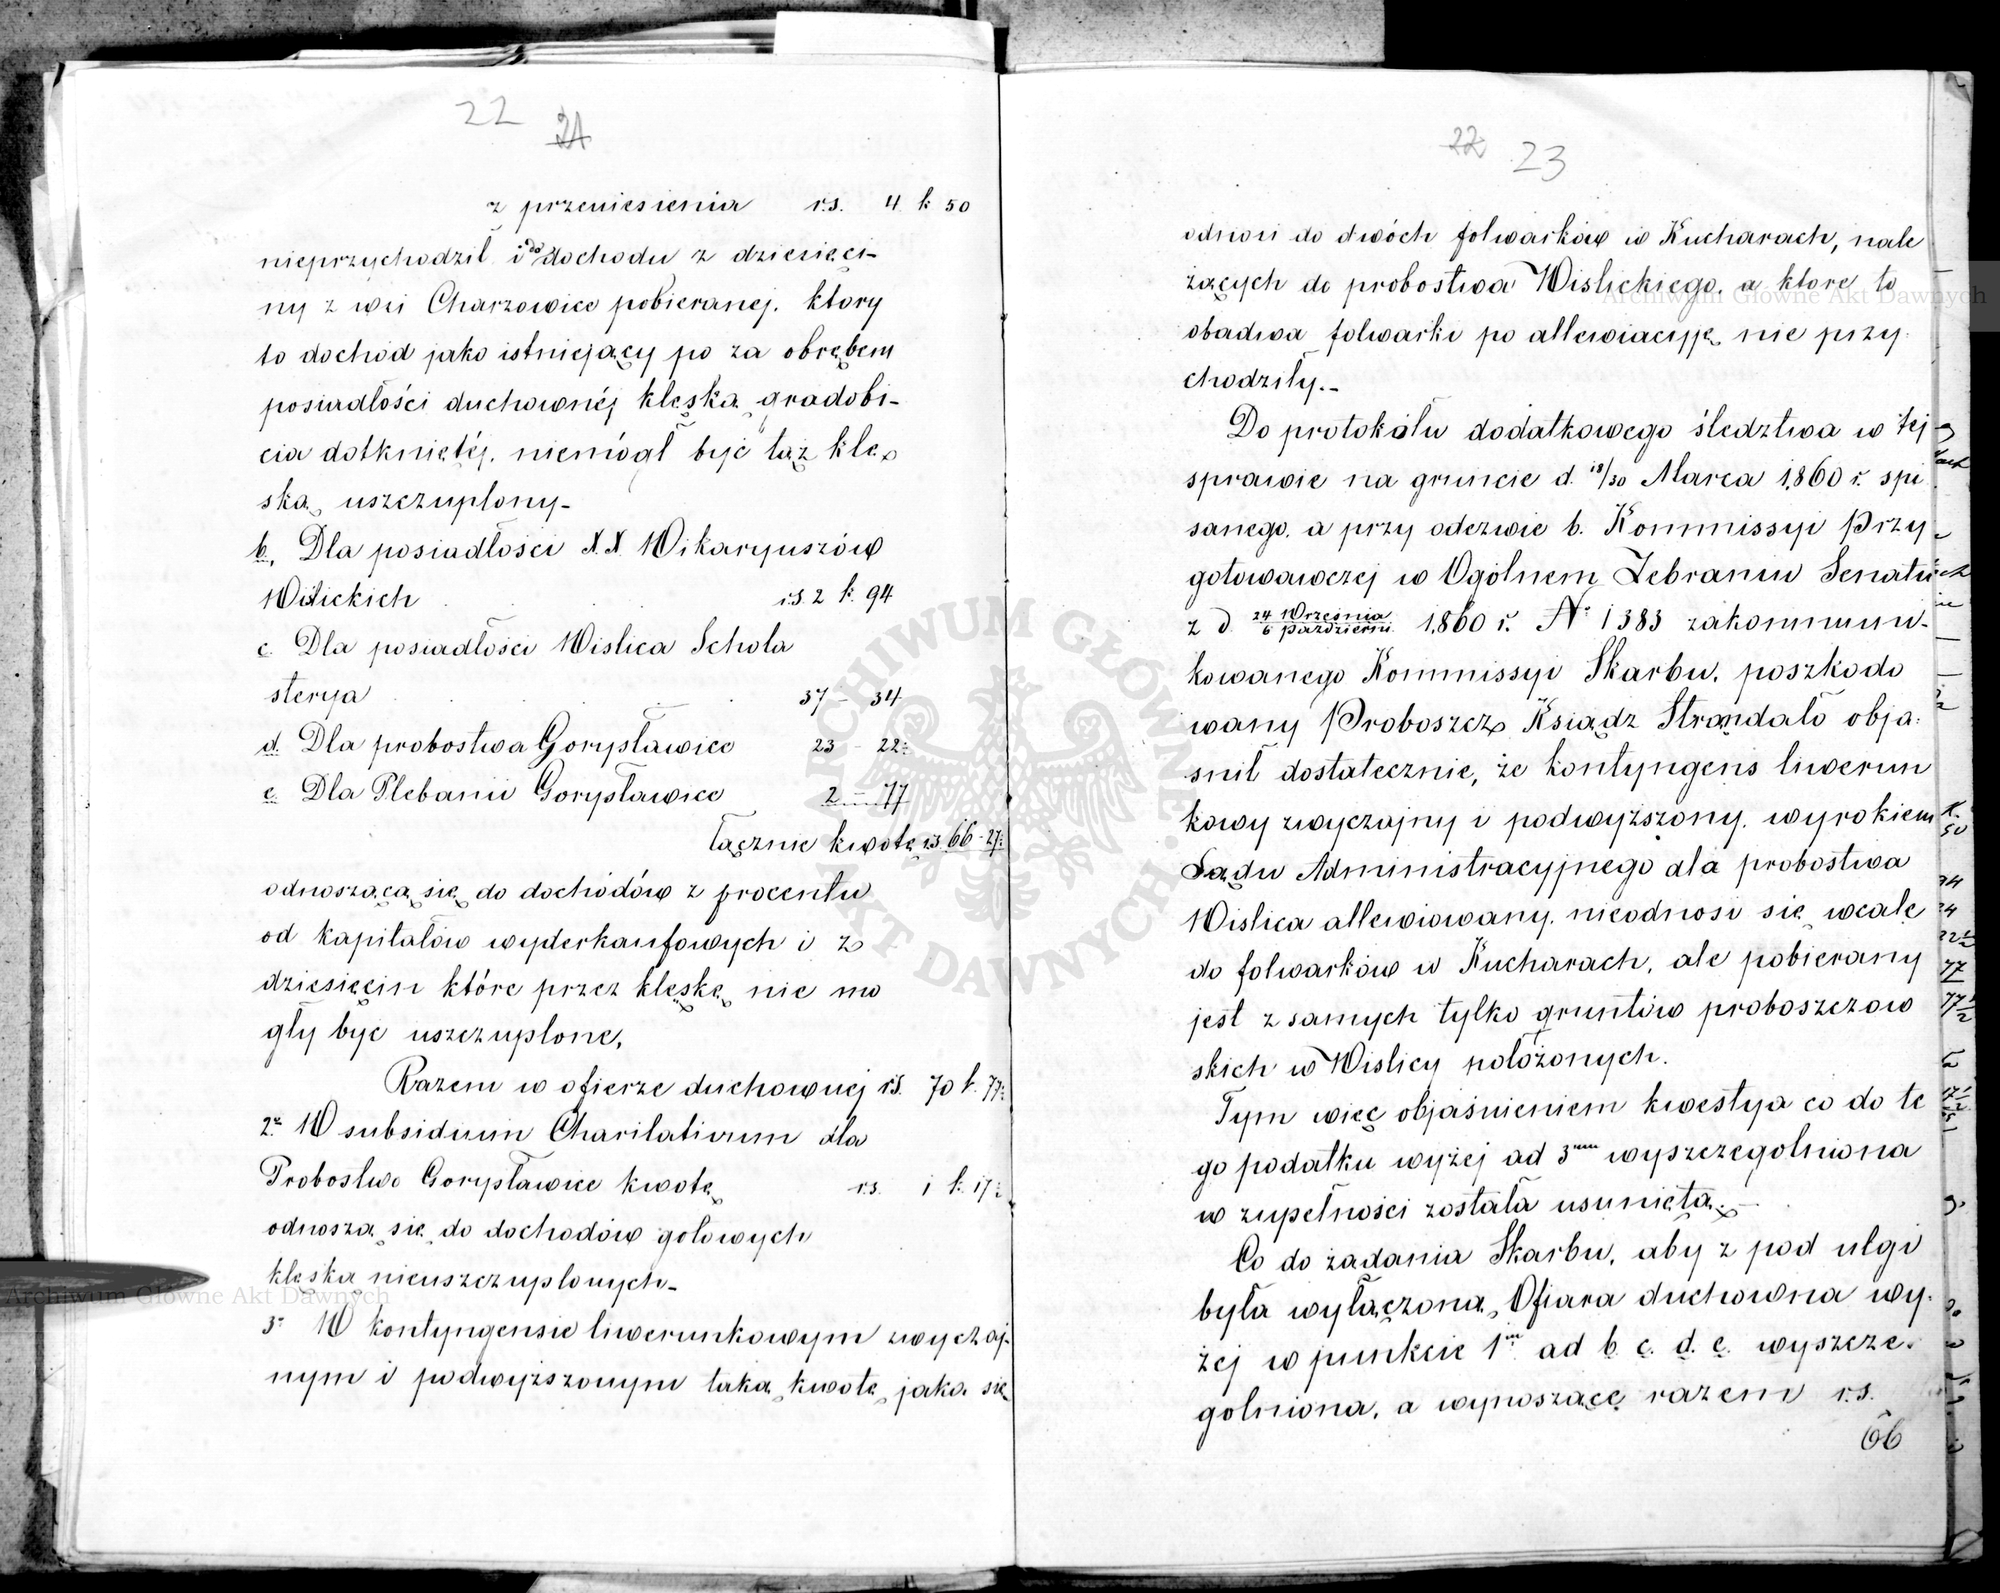 22 21
z przeniesienia rs. 4 k 50
nieprzychodził i do dochodu z dziesięci-
ny z wsi Charzowice pobieranej, ktory
to dochod jako istniejący po za obrębem
posiadłości duchownéj klęską gradobi-
cia dotkniętéj, niemógł być tąż klę
ską uszczuplony-
b, Dla posiadłości X.X. Wikaryuszów
Wislickich rs. 2 k. 94
c Dla posiadłości Wislica Schola
sterya 37 - 34
d. Dla probostwa Gorysławice 23 - 22½
e. Dla Plebanii Gorysławice 2 - 77
łącznie kwotę rs. 66 - 27½
odnoszącą się do dochodów z procentu
od kapitałów wyderkaufowych i z
dziesięcin które przez klęskę nie mo
gły być uszczuplone,
Razem w ofierze duchownej rs. 70 k. 77½
2° W subsidium Charitativum dla
Probostwo Gorysławice kwotę rs. 1 k. 17½
odnoszą się do dochodów gotowych
klęską nieuszczuplonych-
3° W kontyngensie liwerunkowym zwyczaj-
nym i podwyższonym taką kwotę jaka się
22 23
odnosi do dwóch folwarków w Kucharach, nale
żących do probostwa Wislickiego, a ktore to
obadwa folwarki po allewiacyję nie przy-
chodziły.-
Do protokółu dodatkowego śledztwa w tej
sprawie na gruncie d. 18/30 Marca 1860 r. spi
sanego, a przy odezwie b. Kommissyi Przy
gotowawczej w Ogólnem Zebraniu Senatu
z d. 24 Września/6 Październ. 1860 r. N° 1383 zakommuni-
kowanego Kommissyi Skarbu, poszkodo
wany Proboszcz Ksiądz Strandało obja-
snił dostatecznie, że kontyngens liwerun
kowy zwyczajny i podwyższony, wyrokiem
Sądu Administracyjnego dla probostwa
Wislica allewiowany, nieodnosi się wcale
do folwarków w Kucharach, ale pobierany
jest z samych tylko gruntów proboszczow
skich w Wislicy położonych.
Tym więc objaśnieniem kwestya co do te
go podatku wyżej ad 3um wyszczegolniona
w zupełności została usuniętą.-
Co do żądania Skarbu, aby z pod ulgi
była wyłączona Ofiara duchowna wy-
żej w punkcie 1m ad b. c. d. e. wyszcze-
golniona, a wynoszącę razem rs.
66
Archiwum Główne Akt Dawnych
Archiwum Główne Akt Dawnych
ARCHIWUM GŁÓWNE AKT DAWNYCH